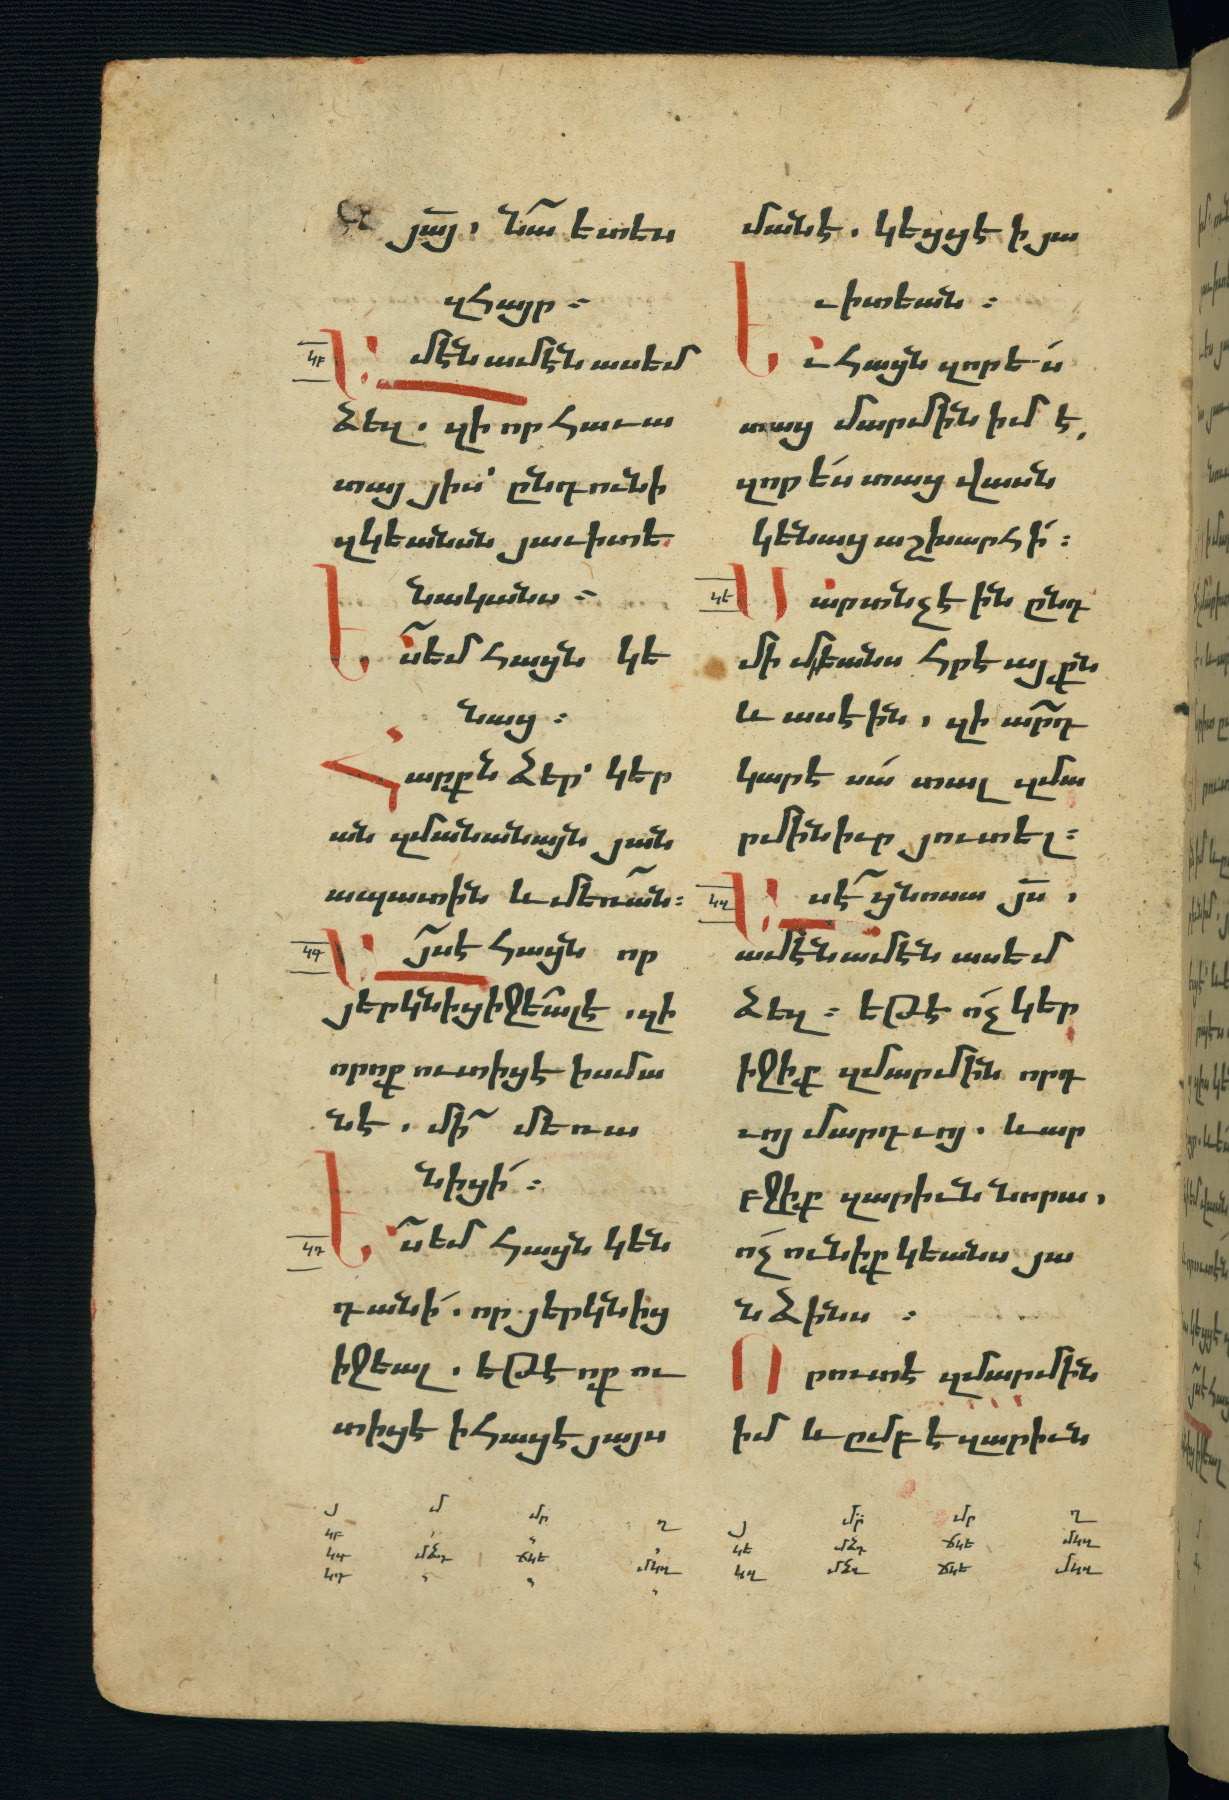 յա̅յ, նա̃ ետես
զհայր ։
կբ Ամէն ամէն ասեմ
ձեզ . զի որ հաւա
տայ յիս՝ ընդունի
զկեանսն յաւիտե
նականս ։
Ես̃ եմ հացն կե
նաց ։
Հարքն ձեր՝ կեր
ան զմանանայն յան
ապատին և մեռա̃ն ։
կգ Այ̃ս է հացն որ
յերկնից իջեա̃լ է, զի
որոք ուտիցէ խմա
նէ . մի̃ մեռա
նիցի́ ։
կդ Ես̃ եմ հացն կեն
դանի́ . որ յերկնից
իջեալ . եթէ ոք ու
տիցէ ի հացէ յայս
մանէ . կեցցէ ի յա
ւիտեան ։
Եւ հացն զոր ե́ս
տաց մարմին իմ է,
զոր ե́ս տաց վասն
կենաց աշխարհի́ ։
կե Մարտնչէին ընդ
միմեանս հրէայքն
և ասէին, զի ա̃րդ
կարէ սա́ տալ զմա
րմին իւր յուտել ։
կզ Ասէ̃ ցնոսա յս̅,
ամէն ամէն ասեմ
ձեզ ։ եթէ ո́չ կեր
իջիք զմարմին որդ
ւոյ մարդւոյ . և ար
բջիք զարիւն նորա,
ո́չ ունիք կեանս յա
նձինս ։
Որ ուտէ զմարմին
իմ և ըմբէ զարիւն
յ մ մր ղ
կբ , , ,
կգ մձդ ճկե մկզ
կդ , , ,
յ մր մր ղ
կե մձդ ճկե մկզ
կզ մձզ ճկե մկզ